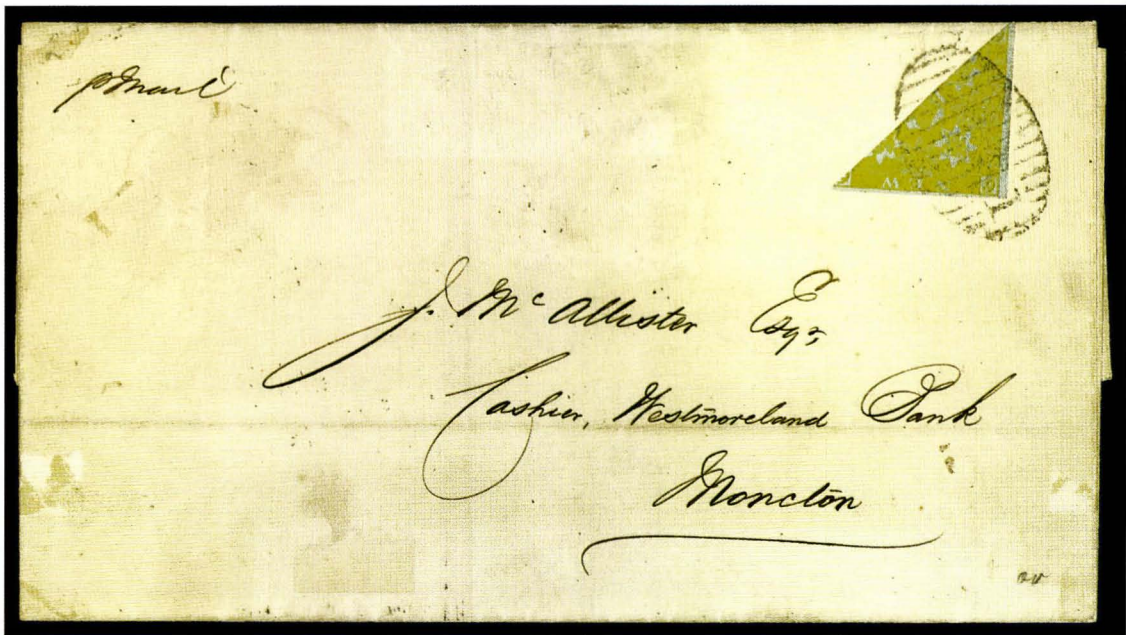 p Mail
J. Mc Allister Esqr,
Cashier, Westmoreland Bank
Moncton